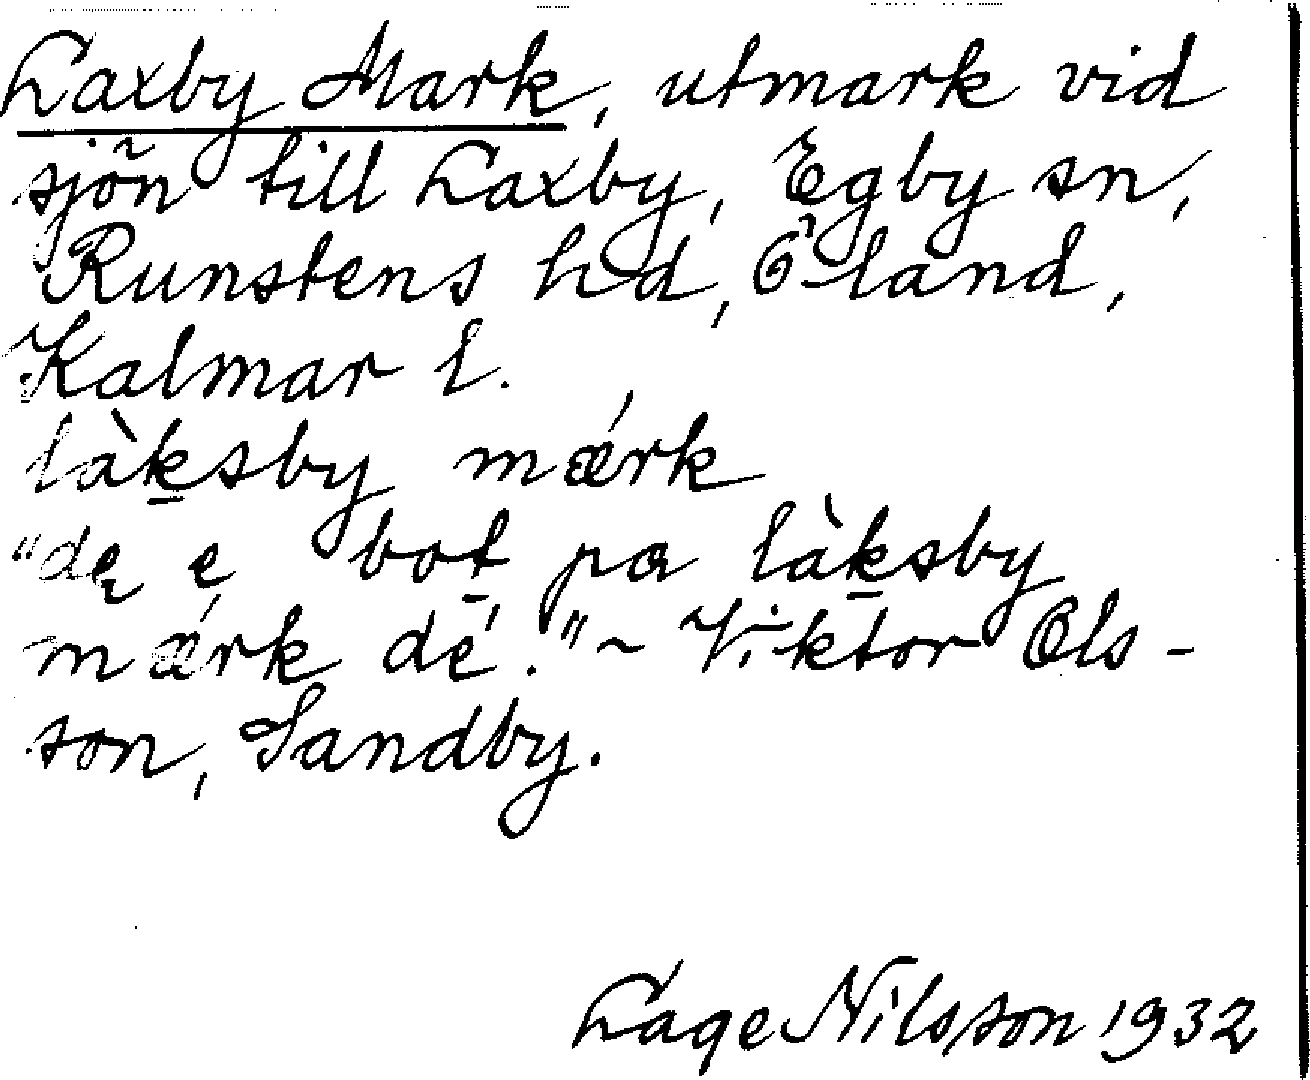 Laxby Mark, utmark vid
sjön till Laxby, Egby sn,
Runstens hd, Öland,
Kalmar l.
làk̲sby mǽrk
"dę ę bot̲ pɑ làk̲sby
mǽrk dé." ~ Viktor Ols-
son, Sandby.
Lage Nilsson 1932